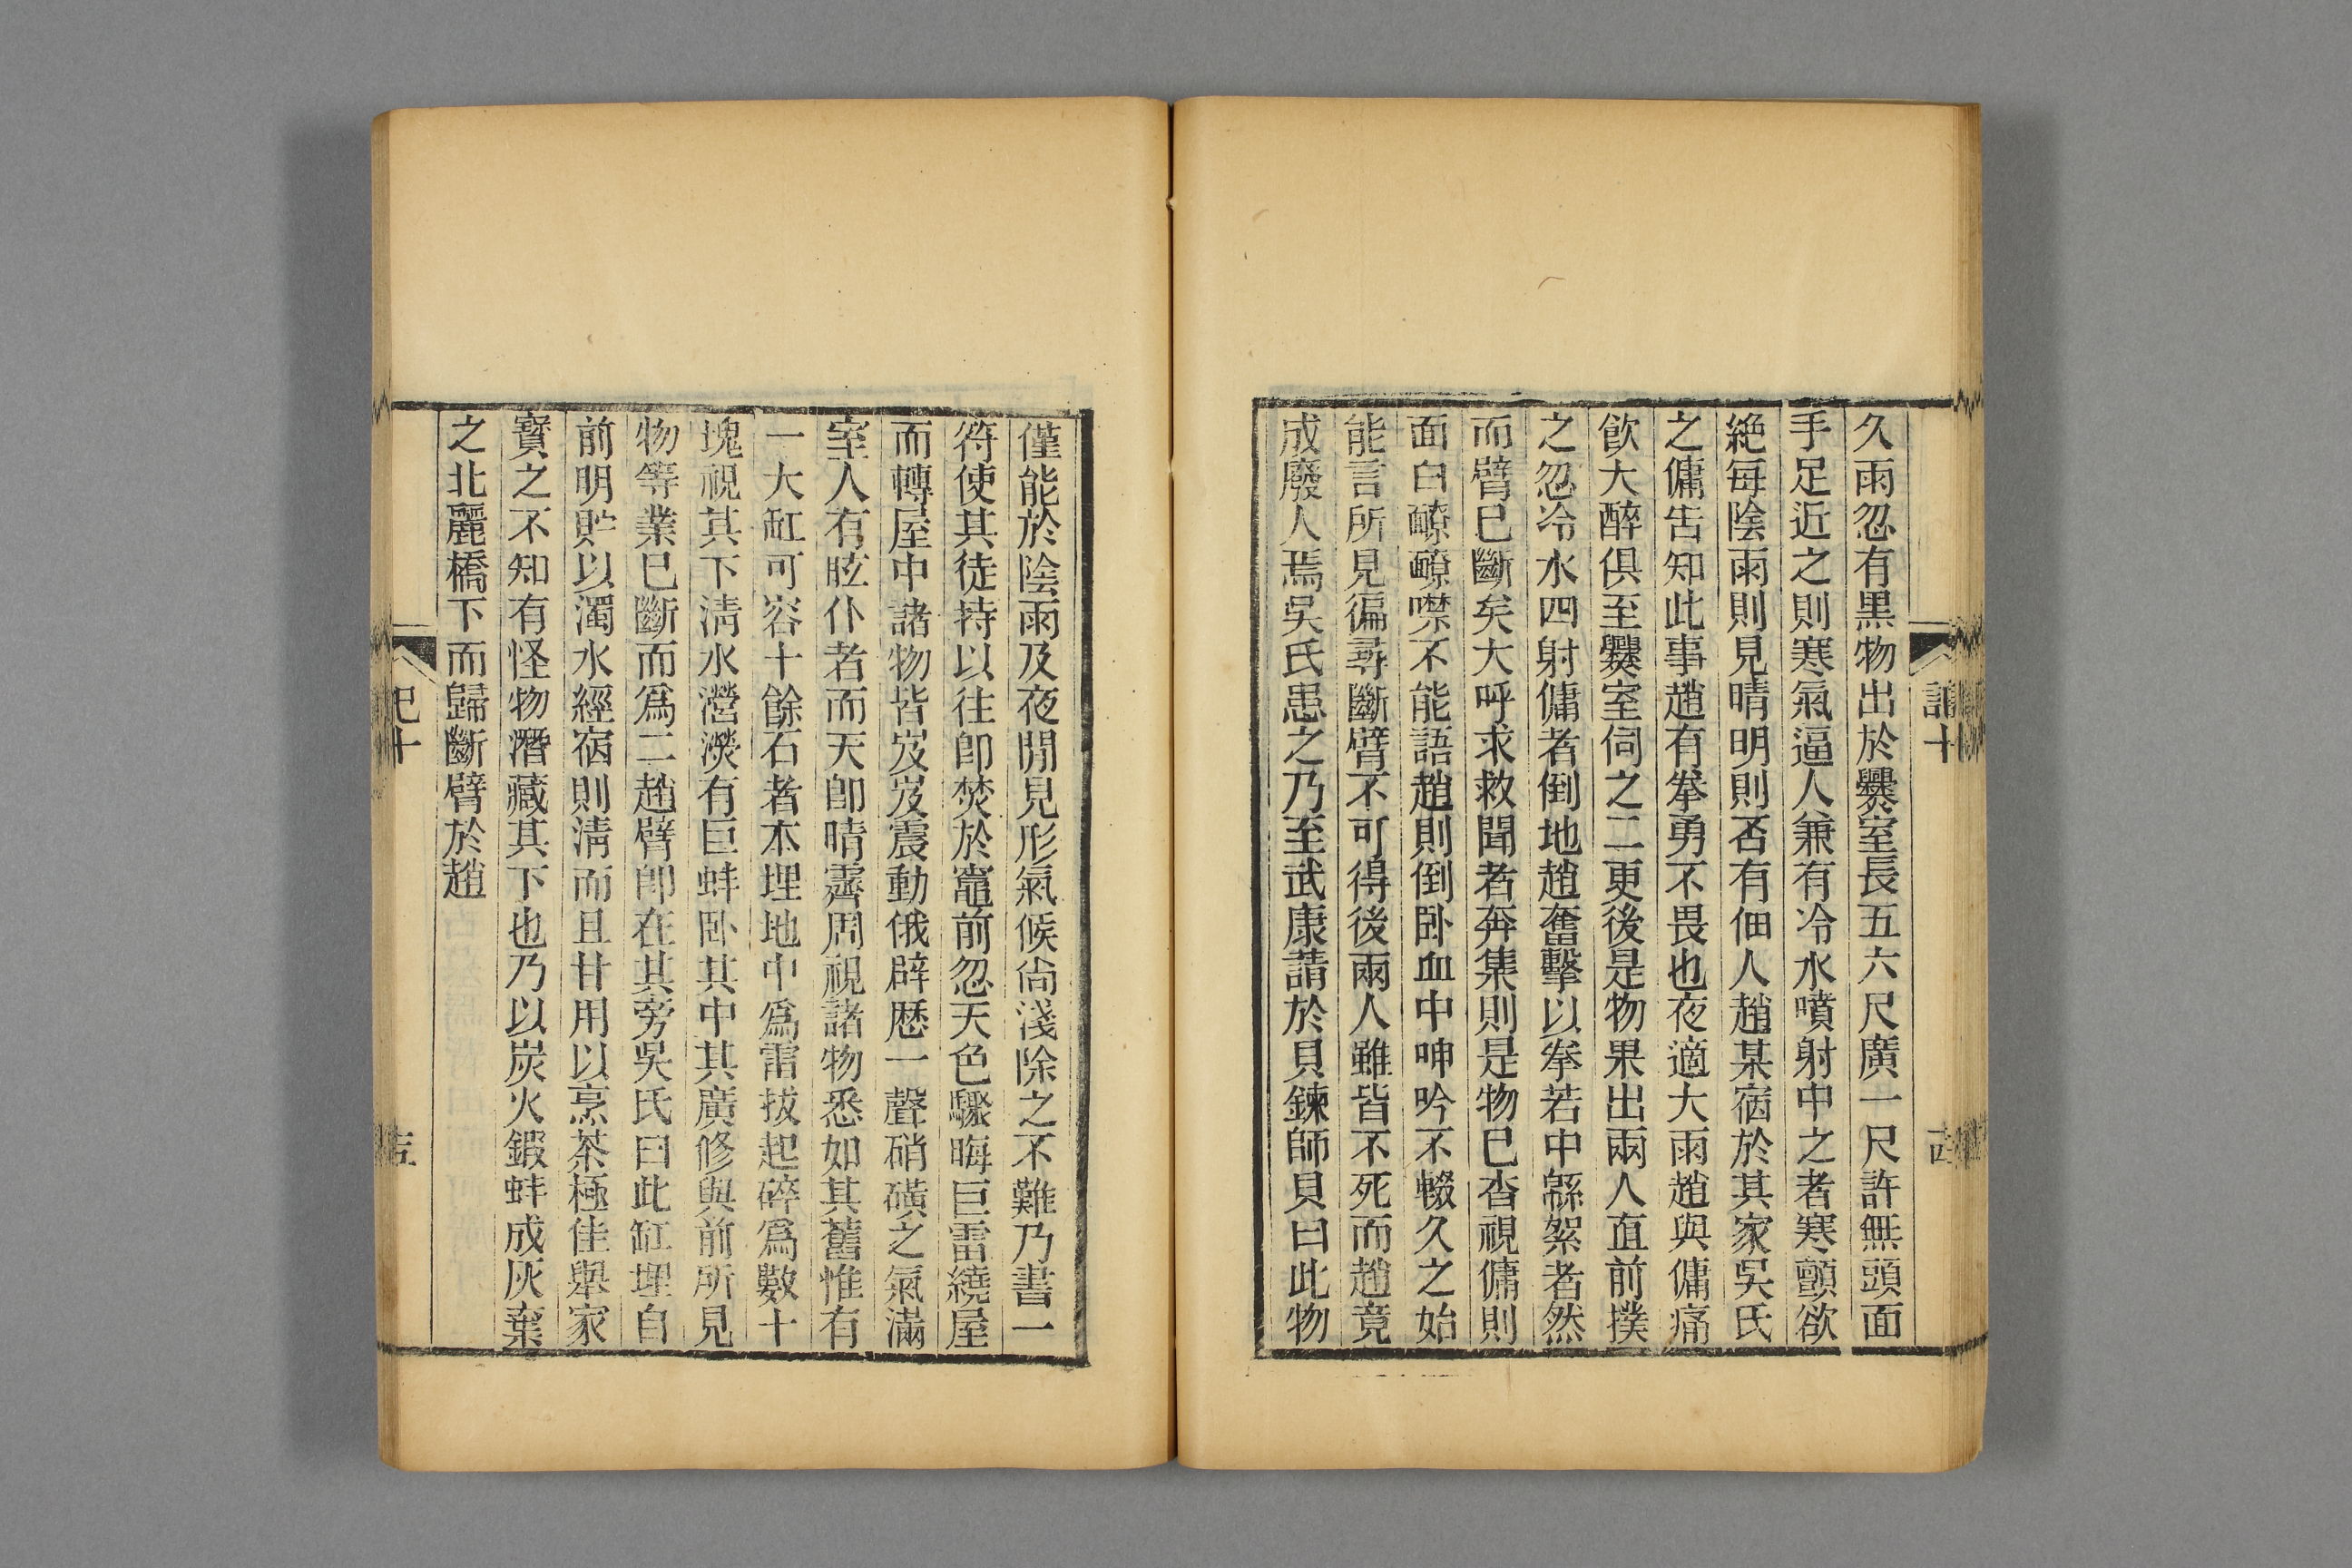 久雨忽有黒物出於爨室長五六尺廣一尺許無頭面
手足近之則寒氣逼人兼有冷水噴射中之者寒顫欲
絶每陰雨則見晴明則否有佃人趙某宿於其家吳氏
之傭告知此事趙有拳勇不畏也夜適大雨趙與傭痛
飮大醉俱至爨室伺之二更後是物果出兩人直前撲
之忽冷水四射傭者倒地趙奮擊以拳若中緜絮者然
而臂已斷矣大呼求救聞者奔集則是物已杳視傭則
面白噤不能語趙則倒卧血中呻吟不輟久之始
能言所見徧尋斷臂不可得後兩人雖皆不死而趙竟
成廢人焉吳氏患之乃至武康請於貝鍊師貝曰此物
十
僅能於陰雨及夜閒見形氣候尙淺除之不難乃書一
符使其徒持以往卽焚於竈前忽天色驟晦巨雷繞屋
而轉屋中諸物皆岌岌震動俄辟歷一聲硝磺之氣滿
室人有眩仆者而天卽晴霽周視諸物悉如其舊惟有
一大缸可容十餘石者本埋地中爲雷拔起碎爲數十
塊視其下淸水瀯濙有巨蚌卧其中其廣修與前所見
物等業已斷而爲二趙臂卽在其旁吳氏曰此缸埋自
前明貯以濁水經宿則淸而且甘用以烹茶極佳舉家
寶之不知有怪物潛藏其下也乃以炭火鍛蚌成灰棄
之北麗橋下而歸斷臂於趙
十